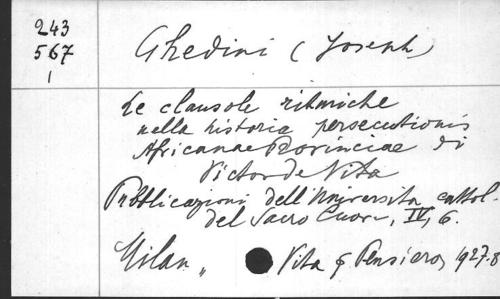 243
567
1
Ghedini (Joseph)
Le clausole ritmiche
nella historia persecutionis
Africanae Provinciae di
Victor de Vita
Pubblicazioni dell'Universita cattol.
del Sacro Cuore, IV, 6.
Milan,, Vita e Pensiero, 1927. 8